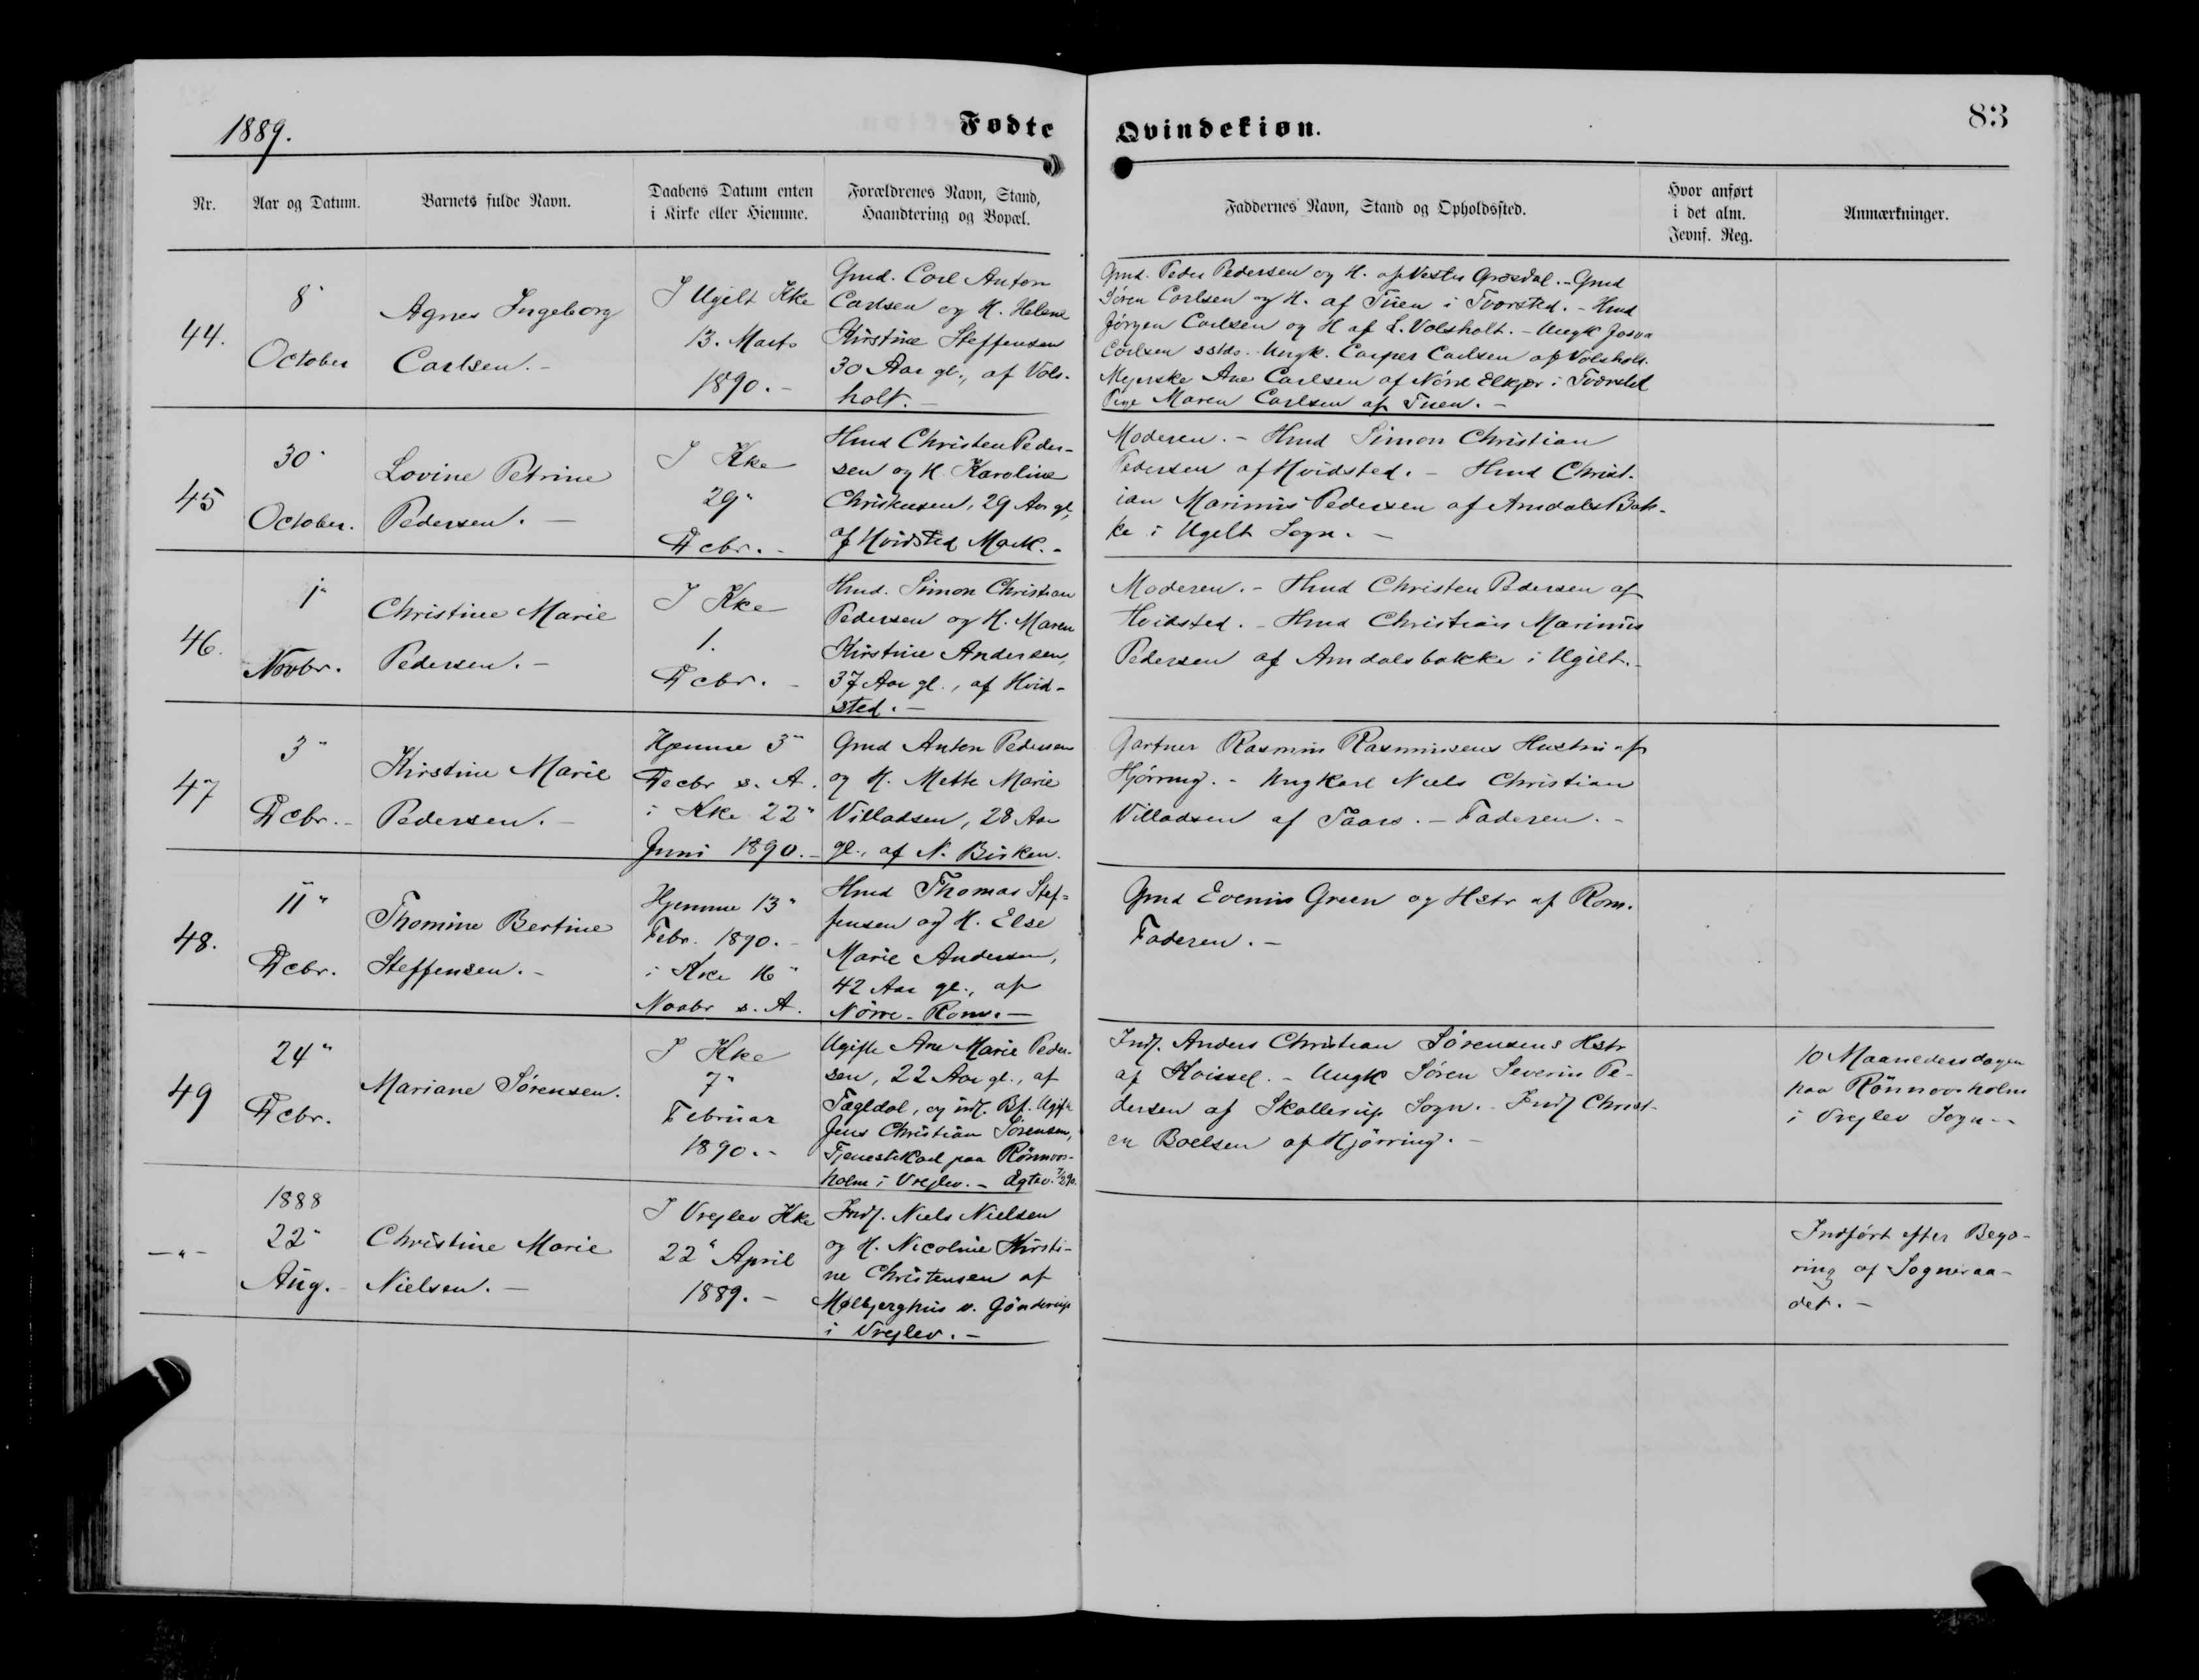 1889.
Fødte Qvindekiøn.
83
Nr.
Aar og Datum.
Barnets fulde Navn.
Daabens Datum enten
i Kirke eller Hiemme.
Forældrenes Navn, Stand,
Haandtering og Bopæl.
Faddernes Navn, Stand og Opholdssted.
Hvor anført
i det alm.
Jevnf. Reg.
Anmærkninger.
44.
8"
October
Agnes Ingeborg
Carlsen.-
I Ugilt Kke
13. Marts
1890.-
Gmd. Carl Anton
Carlsen og H. Helene
Kirstine Steffensen
30 Aar gl., af Vols-
holt.-
Gmd. Peder Pedersen og H. af Vester Grøsdal.- Gmd
Sören Carlsen og H. af Tuen i Tversted.- Hmd
Jörgen Carlsen og H af L. Volsholt.- Ungk
Carlsen sstds. Ungk. Casper Carlsen af Volsholt.
Mejerske Ane Carlsen af Nörre Elkjær i Tversted
Pige Maren Carlsen af Tuen.-
45
30"
October.
Lovine Petrine
Pedersen.-
I Kke
29"
Dcbr.-
Hmd Christen Peder-
sen og H. Karoline
Christensen, 29 Aar gl.,
af Hvidsted Mark.-
Moderen.- Hmd Simon Christian
Pedersen af Hvidsted.- Hmd Christ-
ian Marinus Pedersen af Amdals Bak-
ke i Ugilt Sogn.-
46.
1"
Novbr.
Christine Marie
Pedersen.-
I Kke
1.
Dcbr.-
Hmd. Simon Christian
Pedersen og H. Maren
Kirstine Andersen,
37 Aar gl., af Hvid-
sted.-
Moderen.- Hmd Christen Pedersen af
Hvidsted.- Hmd Christian Marinus
Pedersen af Amdalsbakke i Ugilt.-
47
3"
Dcbr.-
Kirstine Marie
Pedersen.-
Hjemme 3"
Decbr s. A.
i Kke 22"
Juni 1890.-
Gmd Anton Pedersen
og H. Mette Marie
Villadsen, 28 Aar
gl., af N. Birken.
Gartner Rasmus Rasmussens Hustru af
Hjörring.- Ungkarl Niels Christian
Villadsen af Taars.- Faderen.-
48.
11"
Dcbr.
Thomine Bertine
Steffensen.-
Hjemme 13"
Febr. 1890.-
i Kke 16"
Novbr s. A.
Hmd Thomas Stef-
fensen og H. Else
Marie Andersen,
42 Aar gl., af
Nörre-Rom.-
Gmd Evenius Green og Hstr af Rom.
Faderen.-
49
24"
Dcbr.
Mariane Sörensen.
I Kke
7"
Februar
1890.-
Ugifte Ane Marie Peder-
sen, 22 Aar gl., af
Tægldal, og udl. Bf. Ugift
Jens Christian Sörensen,
Tjenestekarl paa Rönnovs-
holm i Vrejlev.- Ægtev. 7/2 90.
Indf. Anders Christian Sörensens Hstr
af Hvissel.- Ungk Sören Severin Pe-
dersen af Skallerup Sogn.- Indf Christ-
en Boelsen af Hjörring.-
10 Maanedersdagen
paa Rönnovsholm
i Vrejlev Sogn.-
-"-
1888
22"
Aug.-
Christine Marie
Nielsen.-
I Vrejlev Kke
22" April
1889.-
Indf. Niels Nielsen
og H. Nicoline Kirsti-
ne Christensen af
Mølbjerghus v. Gönderup
i Vrejlev.-
Indfört efter Begæ-
ring af Sogneraa-
det.-